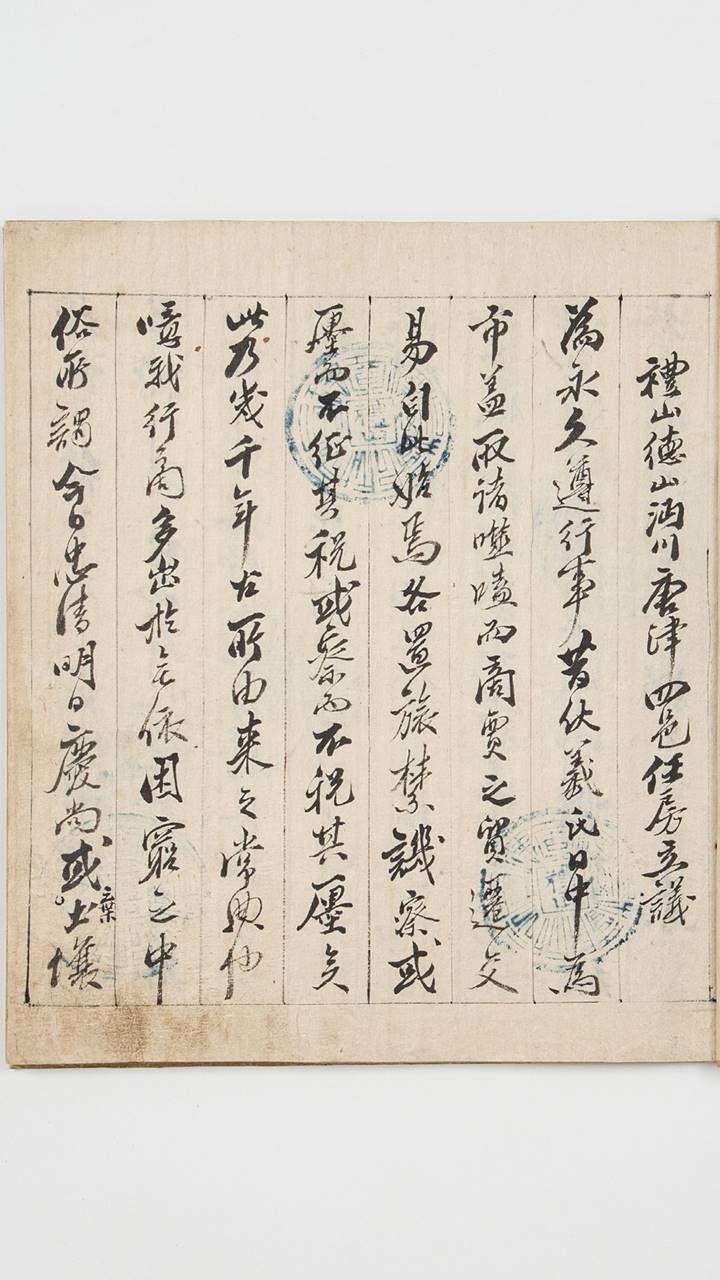 禮山德山沔川唐津四邑任房立議
爲永久遵行事昔伏羲氏日中爲
市盖取諸噬嗑而商賈之貿遷交
易自此始焉各置旅禁譏察或
廛而不征其稅或察而不稅其廛矣
此乃幾千年古所由來之常典也
噫我行商多出於無依困窮之中
俗所謂今日忠淸明日慶尙或棄土壤